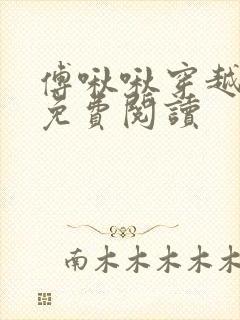 傅啾啾穿越
免費閱讀
南木木木木